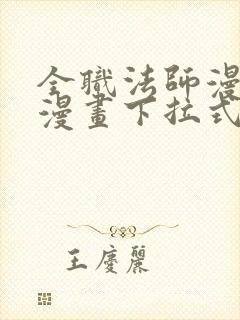 全職法師漫
漫畫下拉式
王慶麗